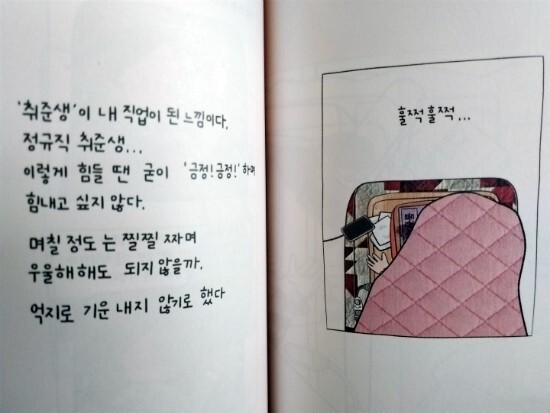 '취준생'이 내 직업이 된 느낌이다.
정규직 취준생...
이렇게 힘들 땐 굳이 '긍정!긍정!'하며
힘내고 싶지 않다.
며칠 정도는 찔찔 짜며
우울해해도 되지 않을까.
억지로 기운 내지 않기로 했다
훌쩍훌쩍...